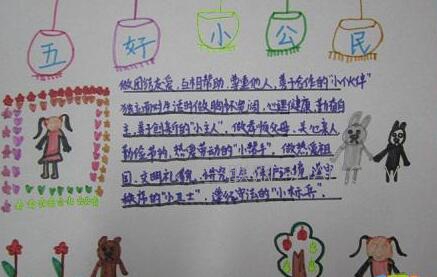 五好小公民
做团结友爱，互相帮助，尊重他人，善于合作的"小伙伴"
独立面对生活时做胸怀宽阔，心理健康，勤奋自
主，善于创新的"小主人"，做孝顺父母、关心亲人
勤俭节约，热爱劳动的"小帮手"，做热爱祖
国，文明礼貌，讲究卫生，保护环境，遵守
秩序的"小卫士"，遵纪守法的"小标兵"。